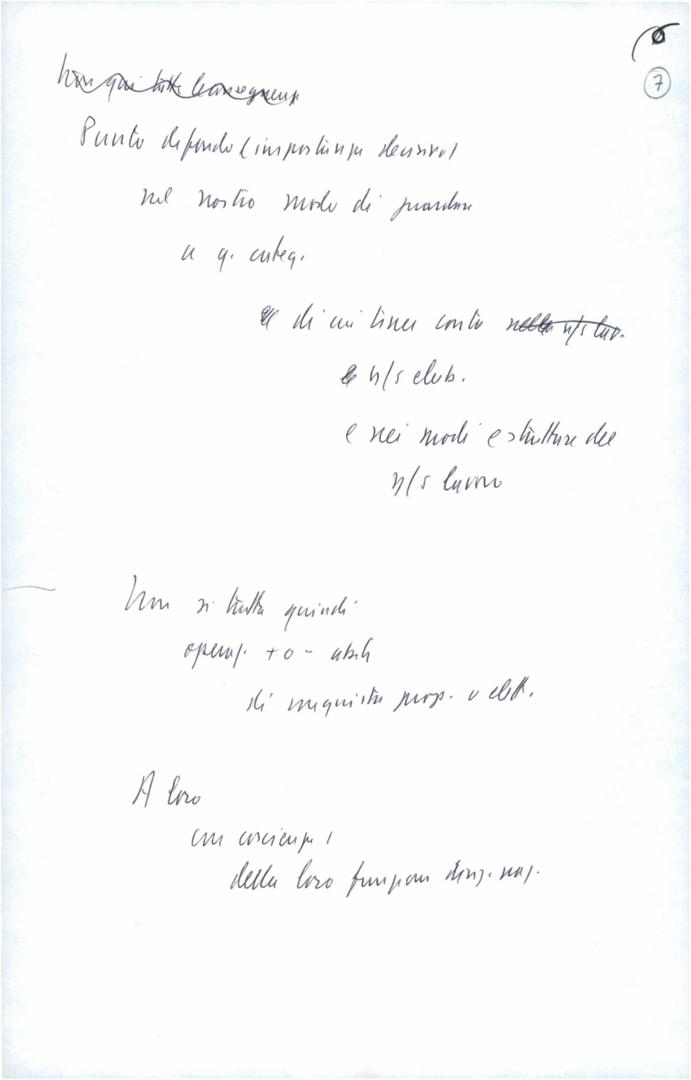 7
Non qui tutte le conseguenze
Punto di fondo (importanza decisiva)
nel nostro modo di guardare
a q. categ.
di cui tener conto nella n/s lav.
n/s elab.
e nei modi e strutture del
n/s lavoro
Non si tratta quindi
operaz. + o - abili
di conquista prop. o elett.
A loro
con coscienza
della loro funzione dirig. naz.